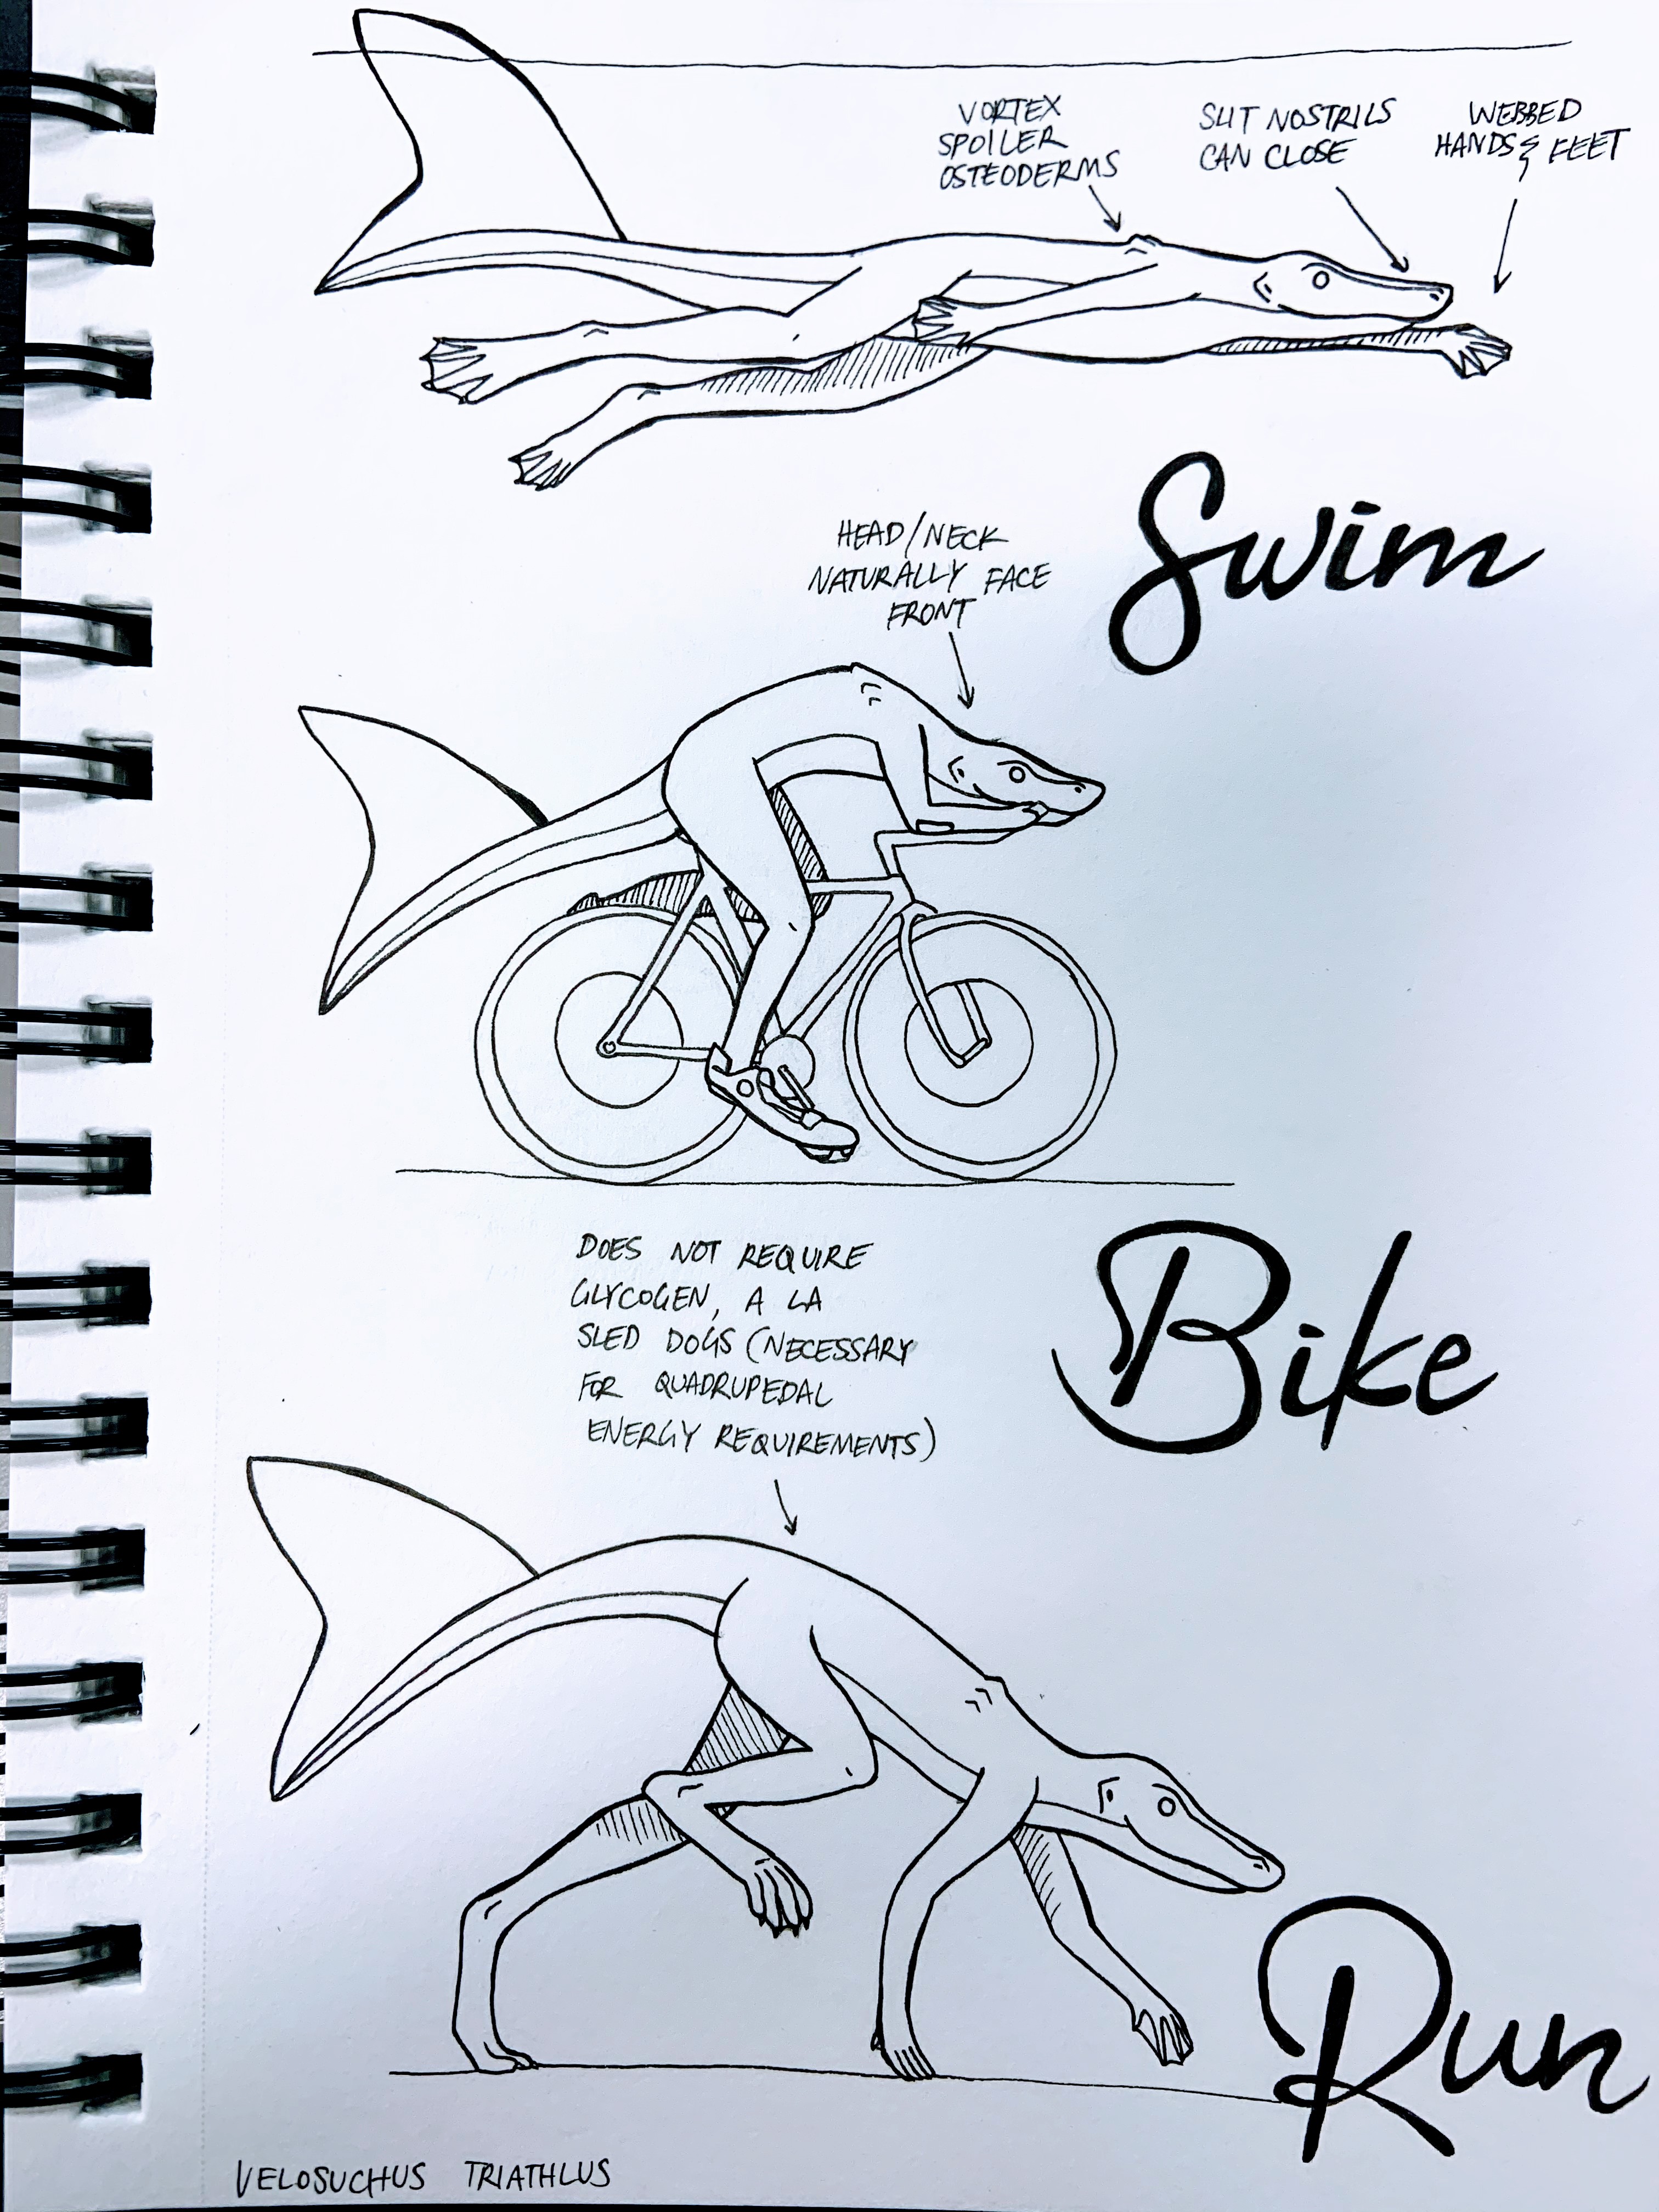 VORTEX
SPOILER
OSTEODERMS
SLIT NOSTRILS
CAN CLOSE
WEBBED
HANDS & FEET
Swim
HEAD/NECK
NATURALLY FACE
FRONT
Bike
DOES NOT REQUIRE
GLYCOGEN, A LA
SLED DOGS (NECESSARY
FOR QUADRUPEDAL
ENERGY REQUIREMENTS)
Run
VELOSUCHUS TRIATHLUS